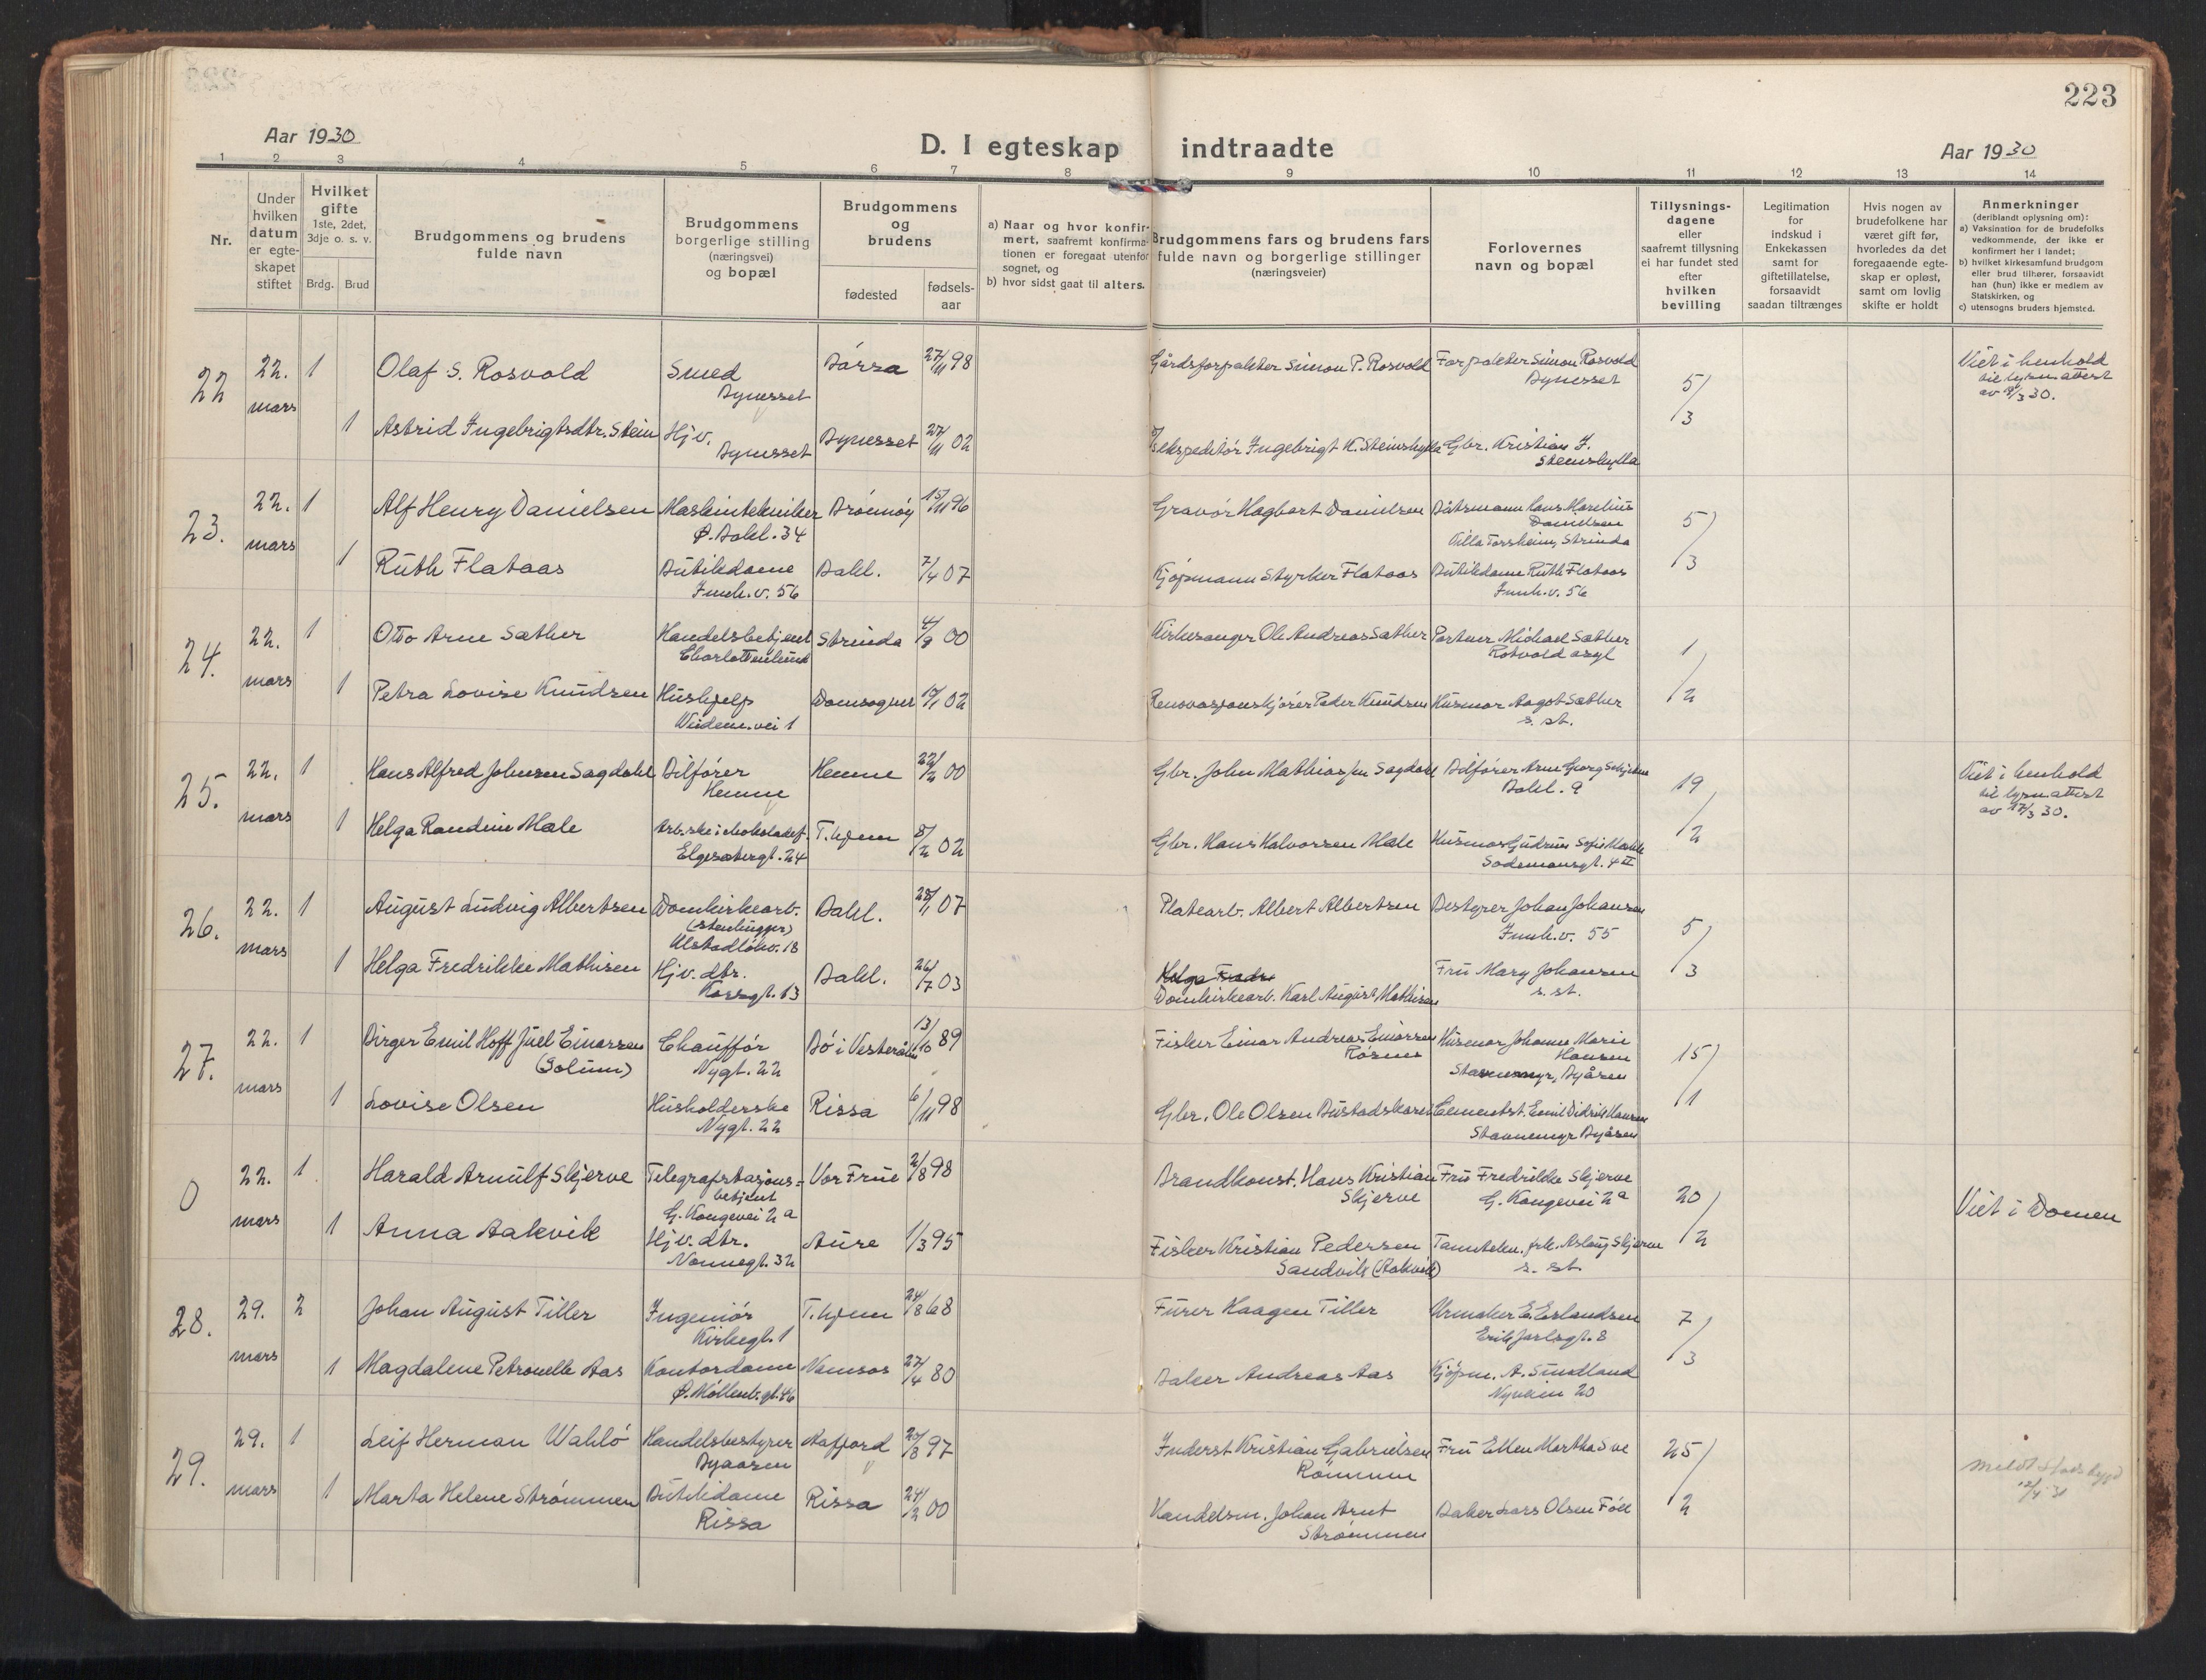 223
Aar 1930
D. I egteskap indtraadte
Aar 1930
1 2 3 4 5 6 7 8 9 10 11 12 13 14
Nr.
Under
hvilken
datum
er egte-
skapet
stiftet
Hvilket
gifte
1ste, 2det,
3dje o. s. v.
Brdg. Brud
Brudgommens og brudens
fulde navn
Brudgommens
borgerlige stilling
(næringsvei)
og bopæl
Brudgommens
og
brudens
fødested
fødsels-
aar
a) Naar og hvor konfir-
mert, saafremt konfirma-
tionen er foregaat utenfor
sognet, og
b) hvor sidst gaat til alters.
Brudgommens fars og brudens fars
fulde navn og borgerlige stillinger
(næringsveier)
Forlovernes
navn og bopæl
Tillysnings-
dagene
eller
saafremt tillysning
ei har fundet sted
efter
hvilken
bevilling
Legitimation
for
indskud i
Enkekassen
samt for
giftetillatelse,
forsaavidt
saadan tiltrænges
Hvis nogen av
brudefolkene har
været gift før,
hvorledes da det
foregaaende egte-
skap er opløst,
samt om lovlig
skifte er holdt
Anmerkninger
(deriblandt oplysning om):
a) Vaksination for de brudefolks
vedkommende, der ikke er
konfirmert her i landet;
b) hvilket kirkesamfund brudgom
eller brud tilhører, forsaavidt
han (hun) ikke er medlem av
Statskirken, og
c) utensogns bruders hjemsted.
22 22. mars 1 Olaf S. Rosvold Smed Børsa 27/11 98 Gårdsforpakter Simon P. Rosvold Forpakter Simon Rosvold 5/3 Viet i henhold
Bynesset Bynesset til lysn.attest
av /3 30.
1 Astrid Ingebrigtsdtr. Stein Hjv. Bynesset 27/11 02 ekspeditør Ingebrigt K. Steinshylla Gbr. Kristian J.
Bynesset Steinshylla
23. 22. mars 1 Alf Henry Danielsen Maskintekniker Brønnøy 15/11 96 Gravør Hagbart Danielsen Båtsmann Hans Marelius 5/3
Ø. Bakl. 34 Danielsen
Villa Torsheim, Strinda
1 Ruth Flataas Butikdame Bakl. 7/4 07 Kjøpmann Styrker Flataas Butikdame Ruth Flataas
Innh.v. 56 Innh.v. 56
24. 22. mars 1 Otto Arne Sæther Handelsbetjent Strinda 4/9 00 Kirkesanger Ole Andreas Sæther Portner Michael Sæther 1/2
Charlottenlund Rotvold asyl
1 Petra Lovise Knudsen Hushjelp Domsognet 12/1 02 Renovasjonskjører Peder Knudsen Husmor Aagot Sæther
Weidem.vei 1 s. st.
25. 22. mars 1 Hans Alfred Johnsen Sagdahl Bilfører Hemne 22/2 00 Gbr. John Mathias Sagdahl Bilfører Arne Georg 19/2 Viet i henhold
Hemne Bakl. 9 til lysn.attest
av 17/3 30.
1 Helga Randine Male Arb.ske i chokoladef. T.hjem 8/2 02 Gbr. Hans Halvorsen Male Husmor Gudrun Sofie
Elgesetergt. 24 Sodemansgt. 4 II
26. 22. mars 1 August Ludvig Albertsen Domkirkearb. Bakl. 28/1 07 Platearb. Albert Albertsen Bestyrer Johan Johansen 5/3
(stenhugger) Innh.v. 55
Ulstadløkv. 18
1 Helga Fredrikke Mathisen Hjv. dtr. Bakl. 26/7 03 Helga Fredr Fru Mary Johansen
Korsgt. 13 Domkirkearb. Karl August Mathisen s. st.
27. 22. mars 1 Birger Emil Hoff Juel Einarsen Chauffør Bø i Vesterålen 13/10 89 Fisker Einar Andreas Einarsen Husmor Johanne Marie 15/1
(Solum) Nygt. 22 Hansen
Stavnemyr, Byåsen
1 Lovise Olsen Husholderske Rissa 6/11 98 Gbr. Ole Olsen Bustadskaren Cementst. Emil Didrik Hansen
Nygt. 22 Stavnemyr Byåsen
0 22. mars 1 Harald Arnulf Skjerve Telegrafstasjons- Vor Frue 2/8 98 Brandkonst. Hans Kristian Fru Fredrikke Skjerve 20/2 Viet i Domen
betjent Skjerve G. Kongevei 2a
G. Kongevei 2a
1 Anna Aakvik Hjv. dtr. Aure 1/3 95 Fisker Kristian Pedersen Tanntekn. frk. Aslaug Skjerve
Nonnegt. 32 Sandvik (Aakvik) s. st.
28. 29. mars 2 Johan August Tiller Ingeniør T.hjem 24/8 68 Furer Haagen Tiller Urmaker E. Erlandsen 7/3
Kirkegt. 1 Erik Jarlsgt. 8
1 Magdalene Petronelle Aas Kontordame Namsos 27/4 80 Baker Andreas Aas Kjøpm. A. Smedland
Ø. Møllenb.gt. 46 Nyveien 20
29. 29. mars 1 Leif Herman Wahlø Handelsbestyrer Aafjord 20/3 97 Inderst Kristian Gabrielsen Fru Ellen Martha Sve 25/2 meldt Stadsbygd
Byaasen
1 Marta Helene Strømmen Butikdame Rissa 24/2 00 Handelsm. Johan Arnt Baker Lars Olsen Føll
Rissa Strømmen